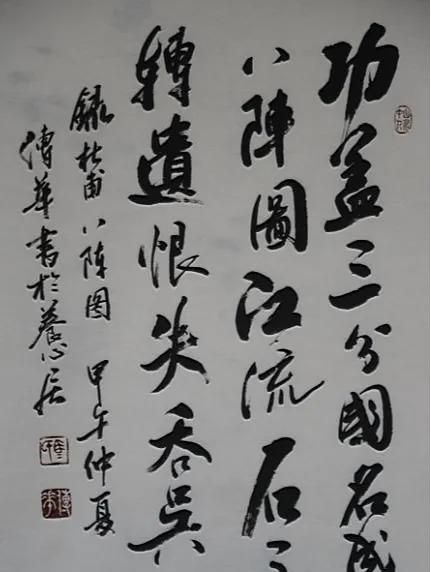 功盖三分國名成
八陣圖江流石
轉遺恨失吞吴
錄杜甫八陣图 甲午仲夏
傅華書於養心居